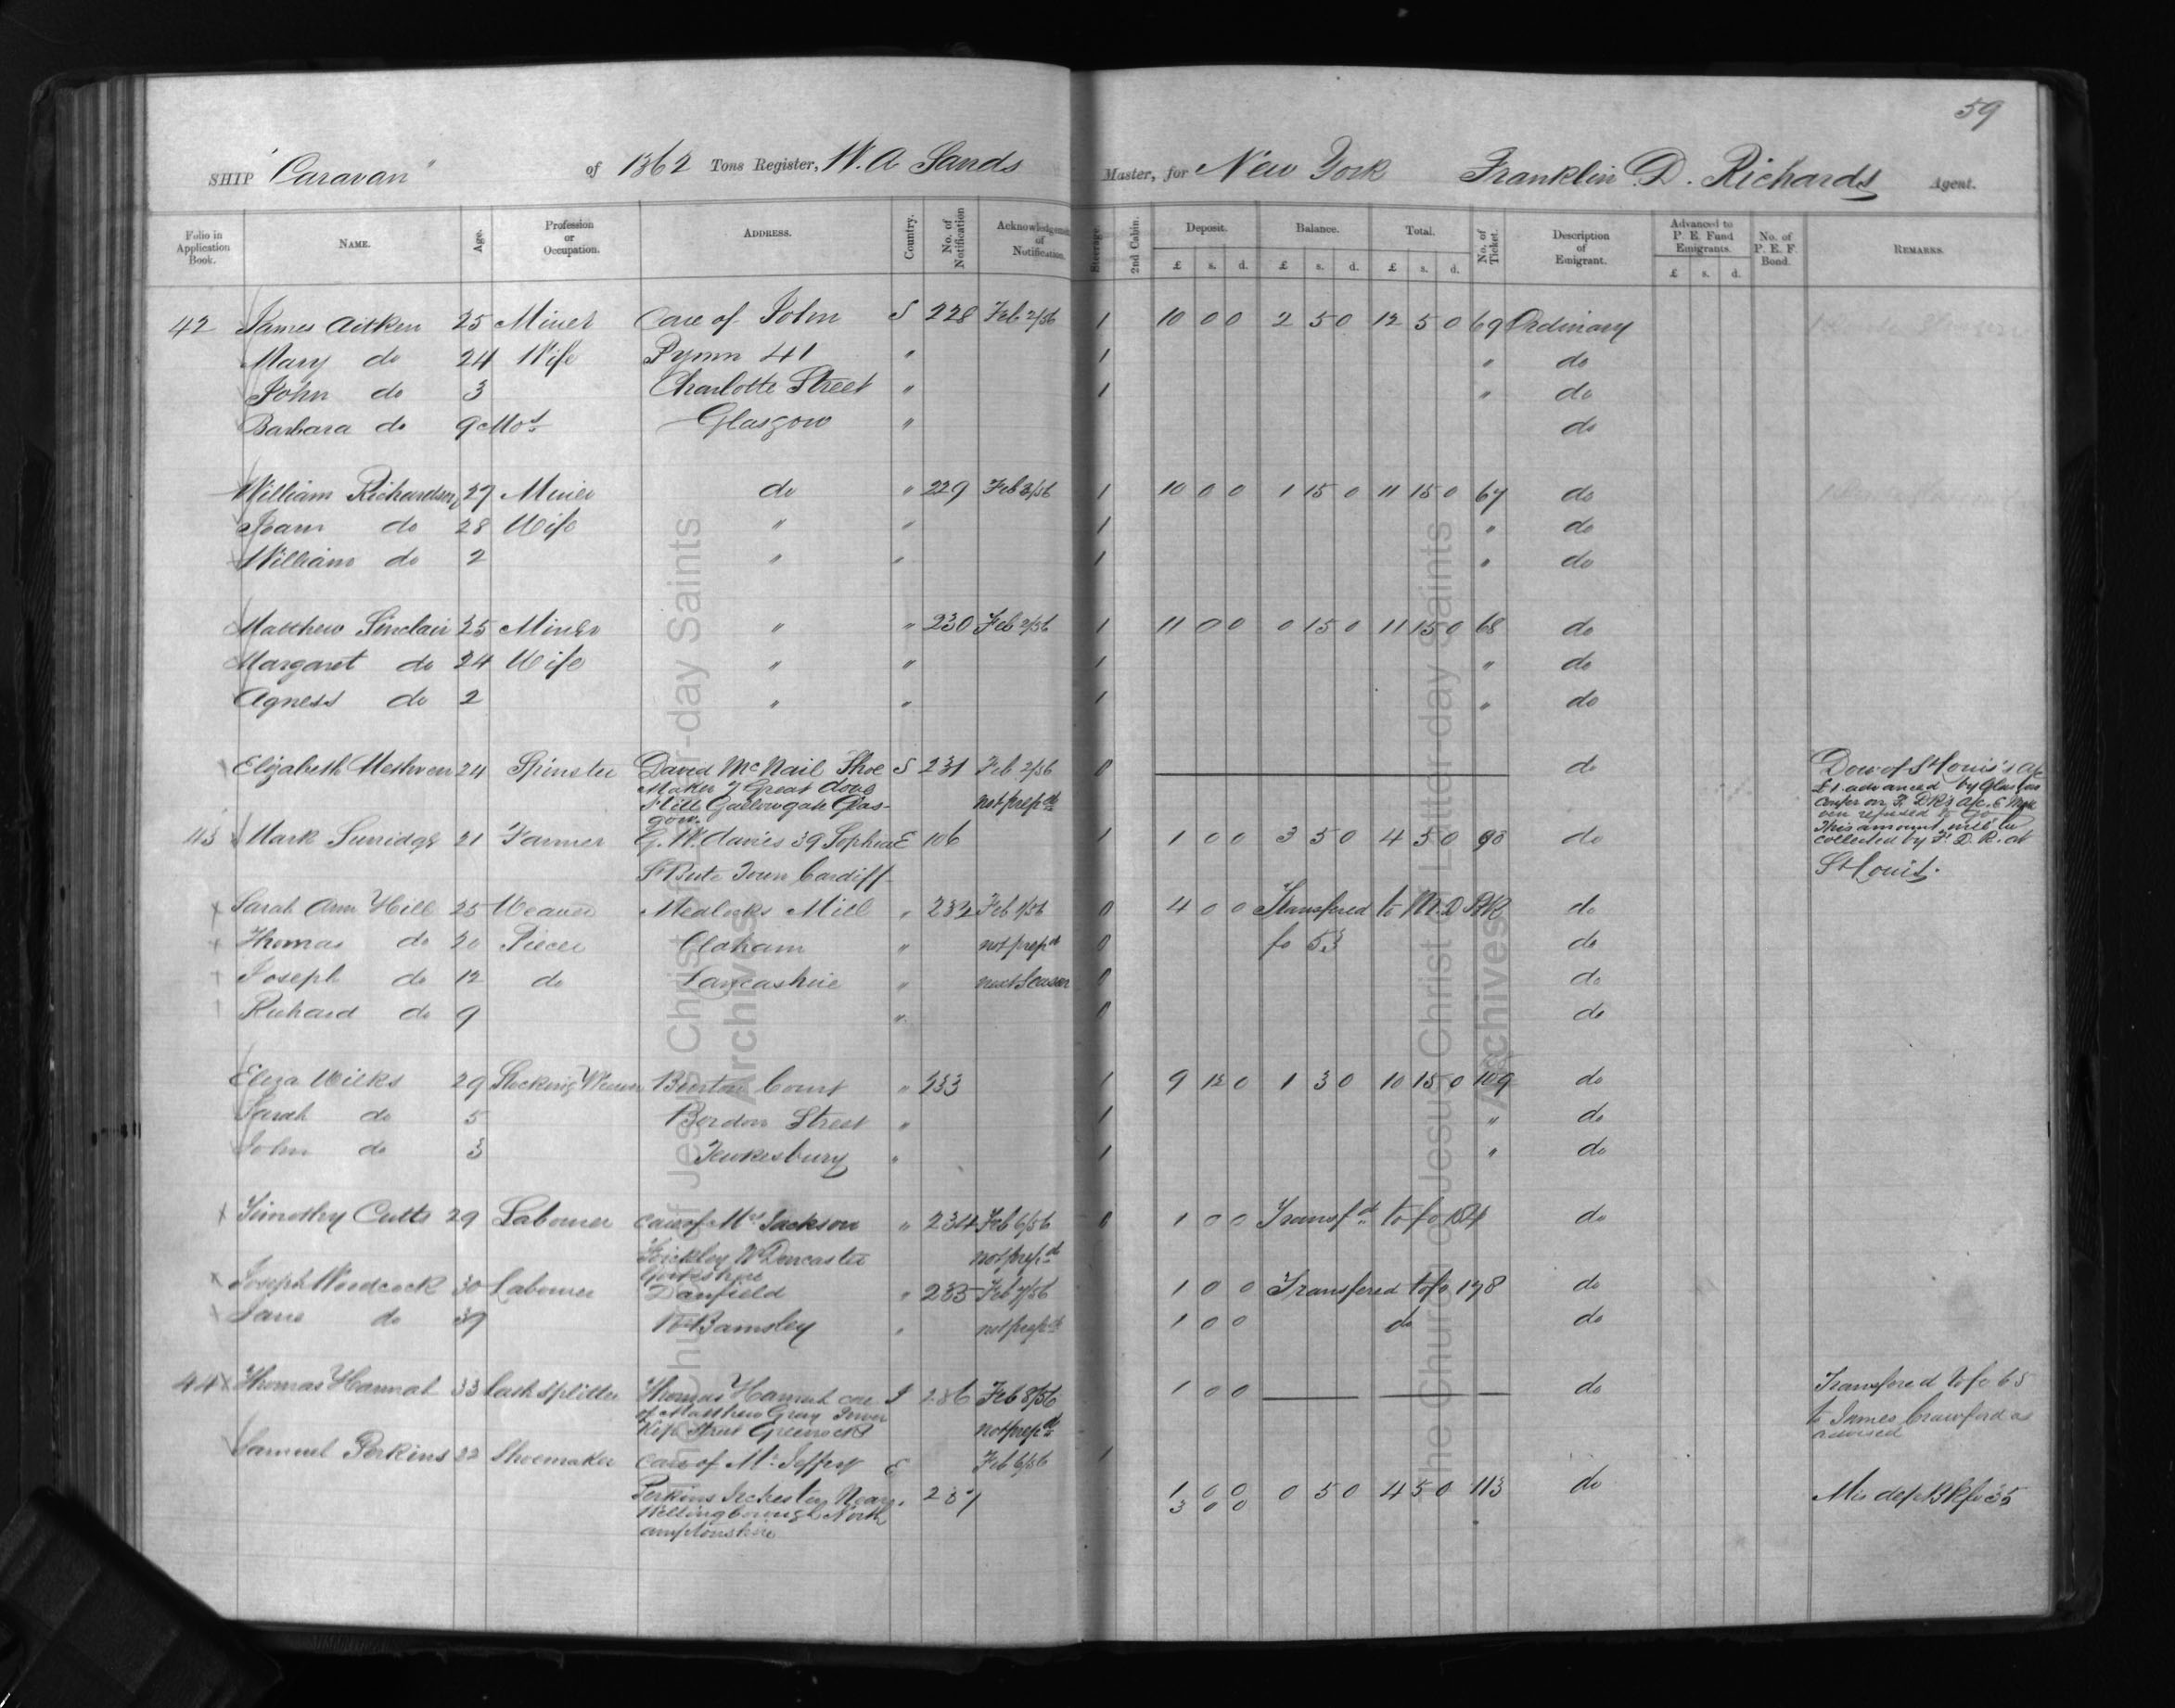 59
SHIP "Caravan" of 1362 Tons Register, W. A Sands Master, for New York Franklin D. Richards Agent.
Folio in Application Book. NAME. Age. Profession or Occupation. ADDRESS. Country. No. of Notification Acknowledgement of Notification. Steerage 2nd Cabin. Deposit. Balance. Total. No. of Ticket. Description of Emigrant. Advanced to P. E. Fund Emigrants. No. of P. E. F. Bond. REMARKS.
£ s. d. £ s. d. £ s. d. £ s. d.
42 James Aitken 25 Miner Care of John S 228 Feb 2/56 1 10 0 0 2 5 0 12 5 0 69 Ordinary
Mary do 24 Wife Pymn 41 " 1 " do
John do 3 Charlotte Street " 1 " do
Barbara do 9 Mos Glasgow " do
William Richardson 27 Miner do " 229 Feb 2/56 1 10 0 0 1 15 0 11 15 0 67 do
Joan do 28 Wife " " 1 " do
William do 2 " " 1 " do
Matthew Sinclair 25 Miner " " 230 Feb 2/56 1 11 0 0 0 15 0 11 15 0 68 do
Margaret do 24 Wife " " 1 " do
Agness do 2 " " 1 " do
Elizabeth Methven 24 Spinster David McNail Shoe S 231 Feb 2/56 0 do
Maker 7 Great Dove
Still Gallowgate Glas- not prepd
gow.
£1 advanced by Glasgow
This amount will be
collected by F. D. R. at
St Louis.
43 Mark Surridge 21 Farmer G. W. Davies 39 Sophia E 106 1 1 0 0 3 5 0 4 5 0 90 do
St Bute Town Cardiff
Sarah Ann Hill 25 Weaver Medlocks Mill " 232 Feb 1/56 0 4 0 0 Transfered to M. D Bk do
Thomas do 20 Piecer Oldham " not prepd 0 fo 53 do
Joseph do 12 do Lancashire " next Season 0 do
Richard do 9 " 0 do
Eliza Wilks 29 Stocking Weaver Burton Court " 233 1 9 12 0 1 3 0 10 15 0 109 do
Sarah do 5 Bordon Street " 1 " do
John do 3 Tewkesbury " 1 " do
Timothy Cutts 29 Laborer care of Mrs Jackson " 234 Feb 6/56 0 1 0 0 Transfd to fo 184 do
Frickley Nr Doncaster not prepd
Yorkshire
Joseph Woodcock 30 Laborer Danfield " 235 Feb 7/56 1 0 0 Transfered to fo 178 do
Jane do 39 Nr Barnsley " not prepd 1 0 0 do do
44 Thomas Hannah 33 Lath Splitter Thomas Hannah care S 236 Feb 8/56 1 0 0 do Transfered to fo 65
of Matthew Gray Inver to James Crawford as
Kip Street Greenock not prepd advised
Samuel Perkins 22 Shoemaker care of Mr Jeffery E Feb 6/56 1
Perkins Irchester Near " 237 1 0 0 0 5 0 4 5 0 113 do Mis dep Bk fo 35
Wellingborough North 3 0 0
amptonshire
The Church of Jesus Christ of Latter-day Saints
Archives
The Church of Jesus Christ of Latter-day Saints
Archives